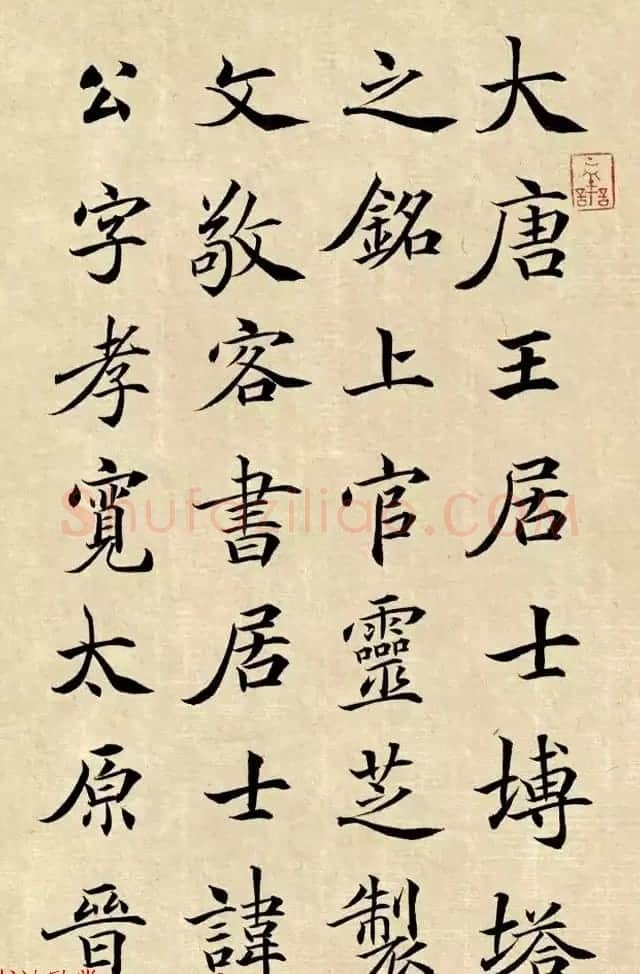 大唐王居士塼塔
之銘上官靈芝製
文敬客書居士諱
公字孝寬太原晉
Shufaziliao.COM